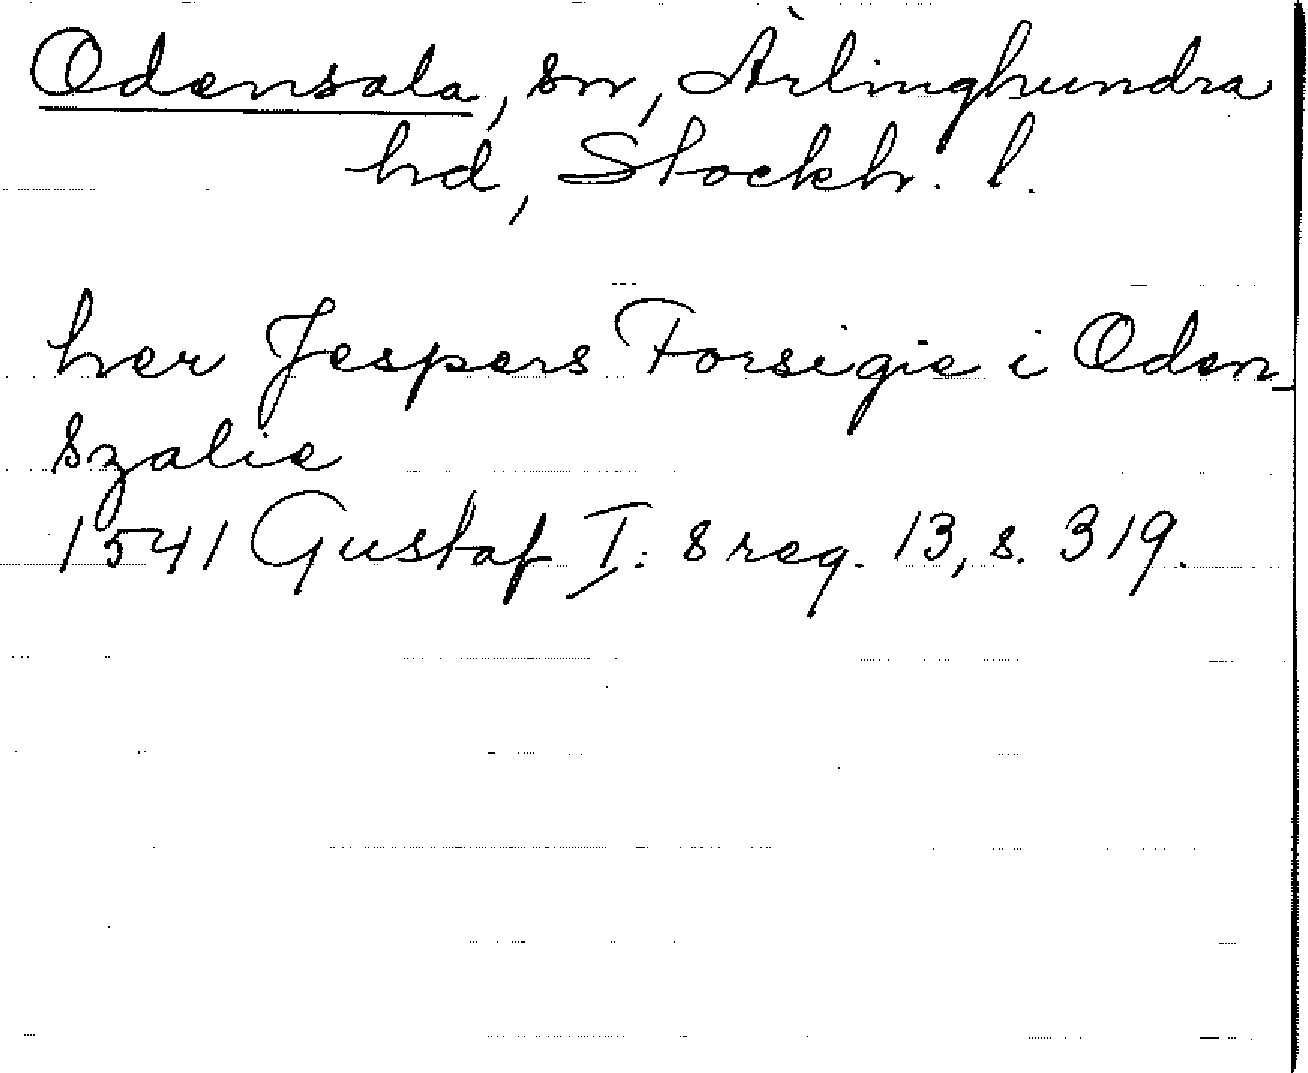 Odensala, sn, Ärlinghundra
hd, Stockh. l.
her Jespers Forsigie i Oden-
szalie
1541 Gustaf I:s reg. 13, s. 319.